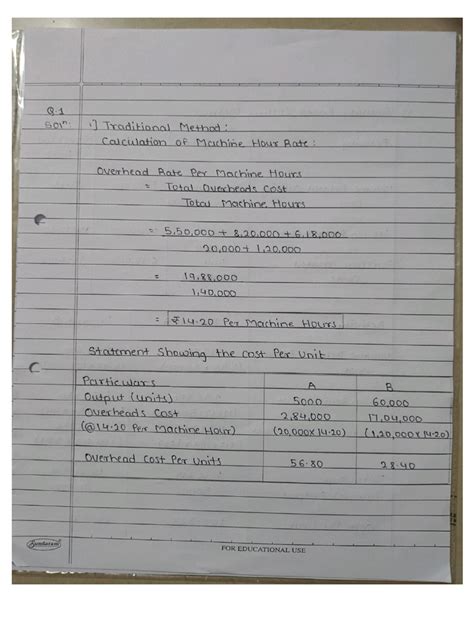 Q.1
Solⁿ. 1] Traditional Method:
Calculation of Machine Hour Rate:
Overhead Rate Per Machine Hours
= Total Overheads Cost
Total Machine Hours
= 5,50,000 + 8,20,000 + 6,18,000
20,000 + 1,20,000
= 19,88,000
1,40,000
= ₹14.20 Per Machine Hours
Statement Showing the Cost Per Unit
Particulars A B
Output (units) 5000 60,000
Overheads Cost 2,84,000 17,04,000
(@14.20 Per Machine Hour) (20,000X14.20) (1,20,000X14.20)
Overhead Cost Per Units 56.80 28.40
Sundaram
FOR EDUCATIONAL USE